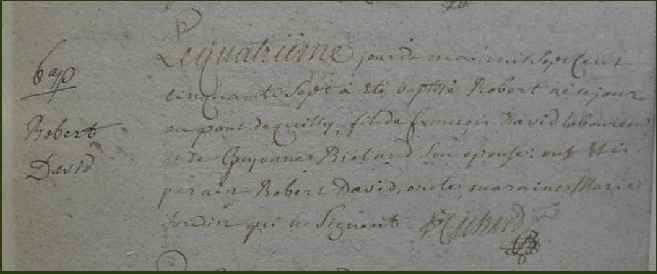 Bap
Robert
David
Le quatrième jour de mai mil sept cent
cinquante sept a été baptisé Robert né ce jour
au pont de quilly, fils de francois David laboureur
et de Guyonne Bieland son épouse; ont été
parain Robert David, oncle, maraine Marie
qui ne signent Richard